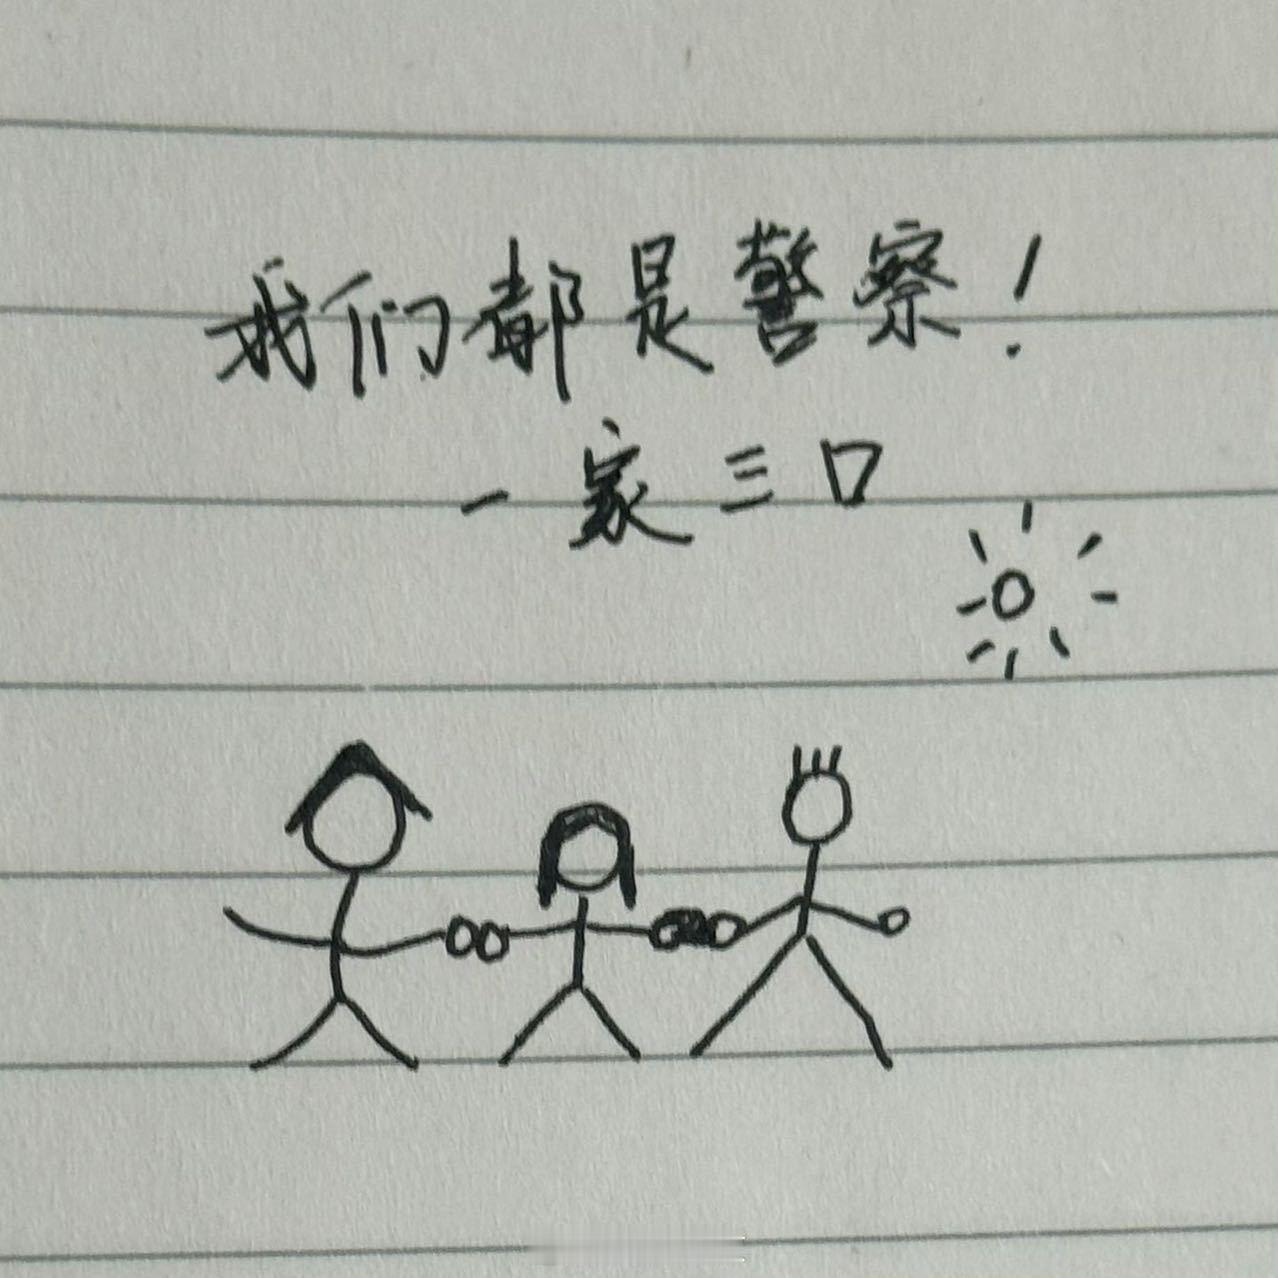 我们都是警察!
一家三口